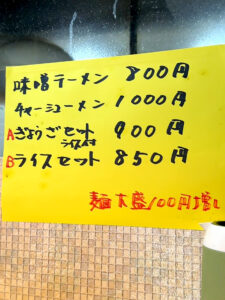 味噌ラーメン 800円
チャーシューメン 1000円
Aぎょうざセット 900円
ライス付
Bライスセット 850円
麺大盛100円増し